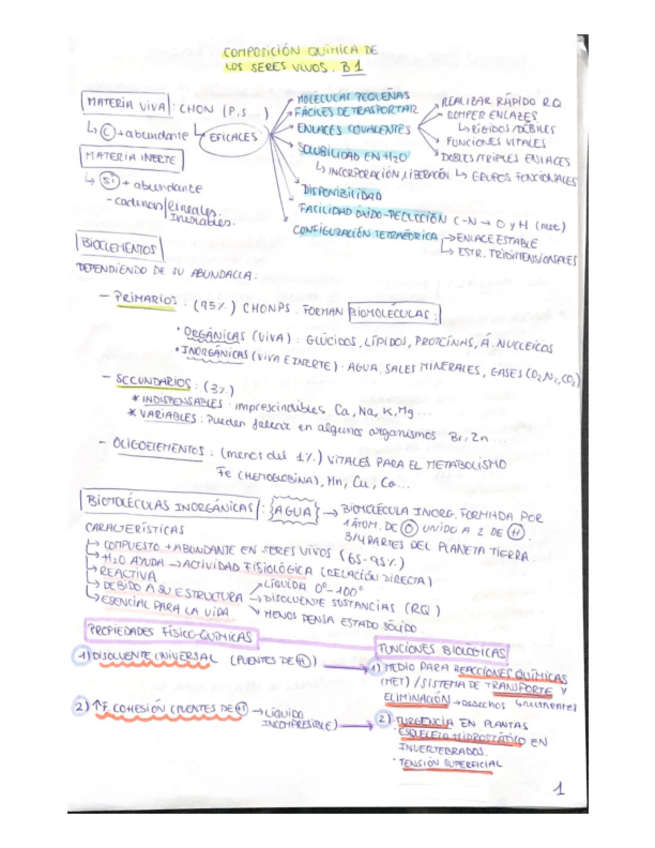 COMPOSICIÓN QUÍMICA DE
LOS SERES VIVOS. B1
MATERIA VIVA: CHON (P,S...)
↳ (C) + abundante
↳ EFICACES
MATERIA INERTE
↳ (Si) + abundante
- cadenas/lineales.
Inestables.
MOLÉCULAS PEQUEÑAS
FÁCILES DE TRASPORTAR
ENLACES COVALENTES
SOLUBILIDAD EN H2O
↳ INCORPORACIÓN, LIBERACIÓN
DISPONIBILIDAD
FACILIDAD ÓXIDO-REDUCCIÓN C-N → O y H (met)
CONFIGURACIÓN TETRAÉDRICA → ENLACE ESTABLE
↳ ESTR. TRIDIMENSIONALES
REALIZAR RÁPIDO RQ
ROMPER ENLACES
↳ RÍGIDOS/DÉBILES
FUNCIONES VITALES
DOBLES/TRIPLES ENLACES
↳ GRUPOS FUNCIONALES
BIOELEMENTOS
DEPENDIENDO DE SU ABUNDACIA:
- PRIMARIOS: (95%) CHONPS. FORMAN BIOMOLÉCULAS:
• ORGÁNICAS (VIVA): GLÚCIDOS, LÍPIDOS, PROTEÍNAS, Á. NUCLEICOS
• INORGÁNICAS (VIVA E INERTE): AGUA, SALES MINERALES, GASES (O2, N2, CO2)
- SECUNDARIOS: (3%)
* INDISPENSABLES: imprescindibles Ca, Na, K, Mg...
* VARIABLES: Pueden faltar en algunos organismos Br, Zn...
- OLIGOELEMENTOS: (menos del 1%) VITALES PARA EL METABOLISMO
Fe (HEMOGLOBINA), Mn, Cu, Co...
BIOMOLÉCULAS INORGÁNICAS: {AGUA} → BIOMOLÉCULA INORG. FORMADA POR
1 ÁTOM. DE (O) UNIDO A 2 DE (H).
3/4 PARTES DEL PLANETA TIERRA.
CARACTERÍSTICAS
↳ COMPUESTO + ABUNDANTE EN SERES VIVOS (65-95%)
↳ H2O AYUDA → ACTIVIDAD FISIOLÓGICA (RELACIÓN DIRECTA)
↳ REACTIVA
↳ DEBIDO A SU ESTRUCTURA → LÍQUIDA 0º-100º
→ DISOLVENTE SUSTANCIAS (RQ)
↘ MENOS DENSA ESTADO SÓLIDO
↳ ESENCIAL PARA LA VIDA
PROPIEDADES FÍSICO-QUÍMICAS
FUNCIONES BIOLÓGICAS
1) DISOLVENTE UNIVERSAL (PUENTES DE (H)) → 1) MEDIO PARA REACCIONES QUÍMICAS
(MET) / SISTEMA DE TRANSPORTE Y
ELIMINACIÓN → Desechos y nutrientes
2) ↑F. COHESIÓN (PUENTES DE (H)) → LÍQUIDO
INCOMPRESIBLE) → 2) TURGENCIA EN PLANTAS
· ESQUELETO HIDROSTÁTICO EN
INVERTEBRADOS.
· TENSIÓN SUPERFICIAL
1